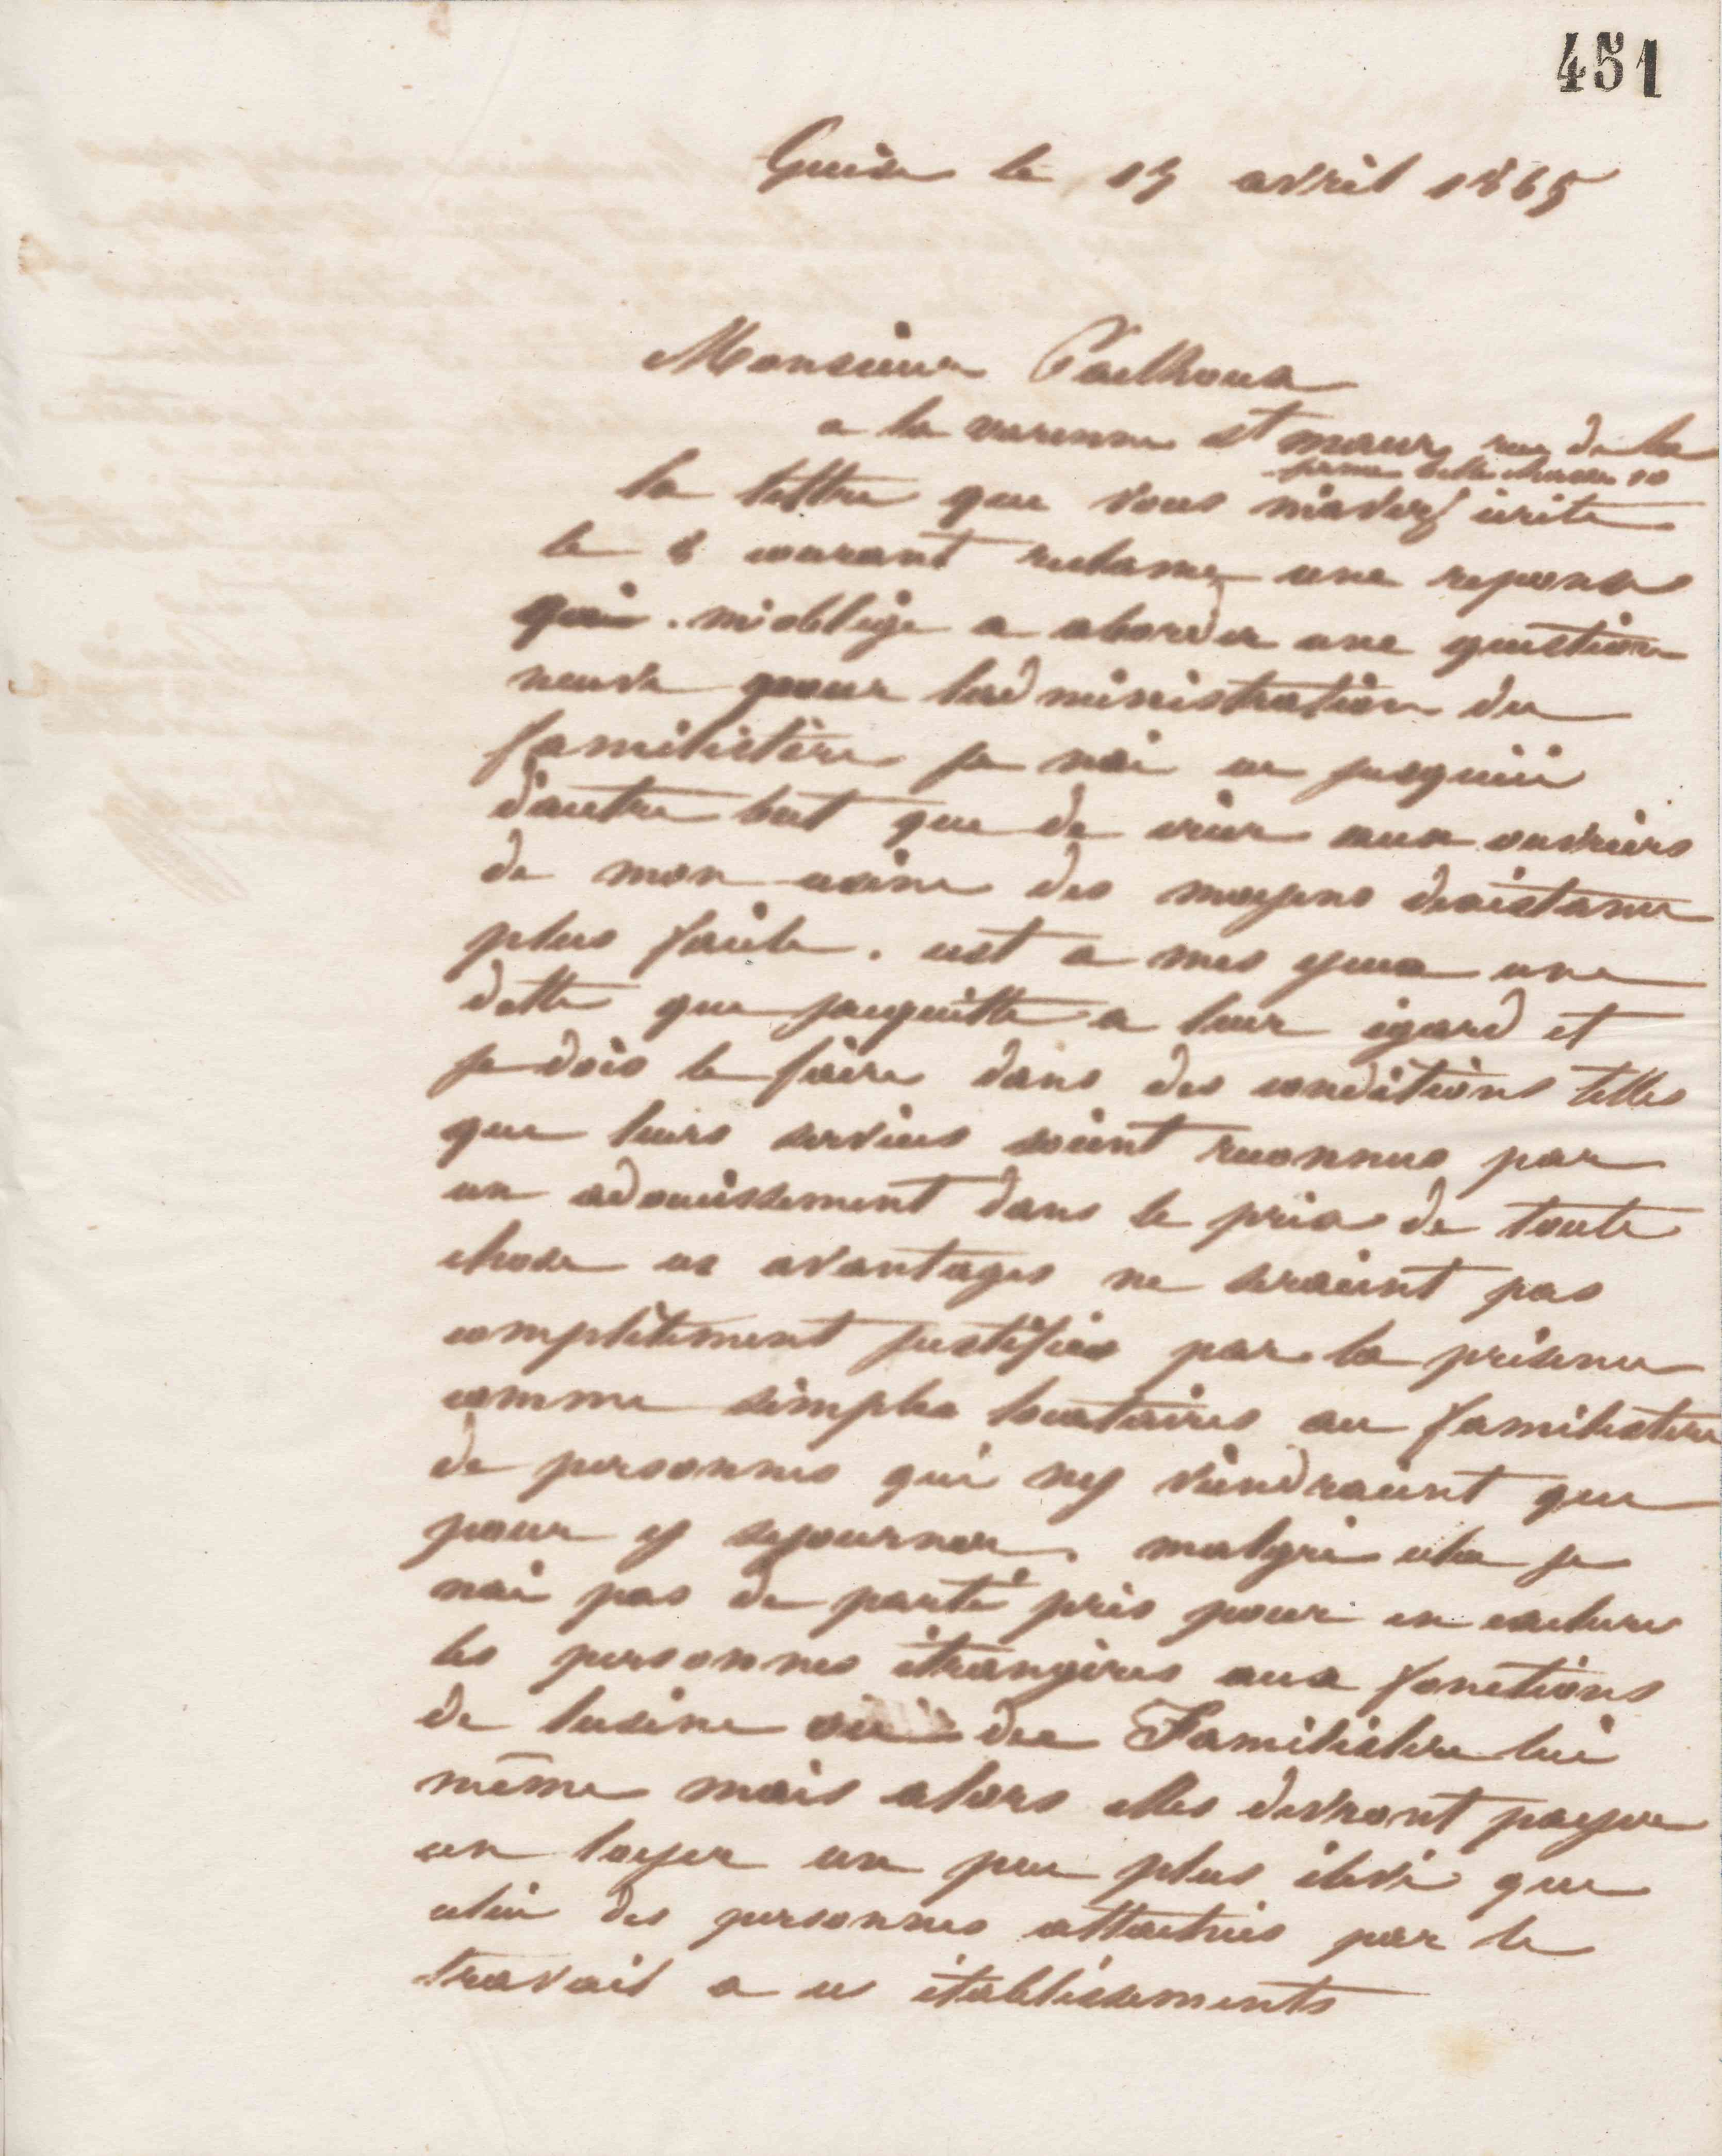 451
Guise le 13 avril 1865
Monsieur Pailhoux
a la varenne St maur rue de la
ferme belle chasse 10
la lettre que vous m'avez écrite
le 8 courant reclame une reponse
qui m'oblige a aborder une question
neuve pour ladministration du
familistère je nai eu jusquici
d'autre but que de créer aux ouvriers
de mon usine des moyens dexistance
plus facile. cest a mes yeux une
dette que jacquitte a leur égard et
je dois le faire dans des conditions telles
que leurs services soient reconnus par
un adoucissement dans le prix de toute
chose ces avantages ne seraient pas
complètement justifiés par la présence
comme simples locataires au familistere
de personnes qui ny viendraient que
pour y sejourner. malgré cela je
nai pas de parti pris pour en exclure
les personnes étrangères aux fonctions
de lusine ou du Familistere lui
même mais alors elles devront payer
un loyer un peu plus élevé que
celui des personnes attachées par le
travail a ces établissements